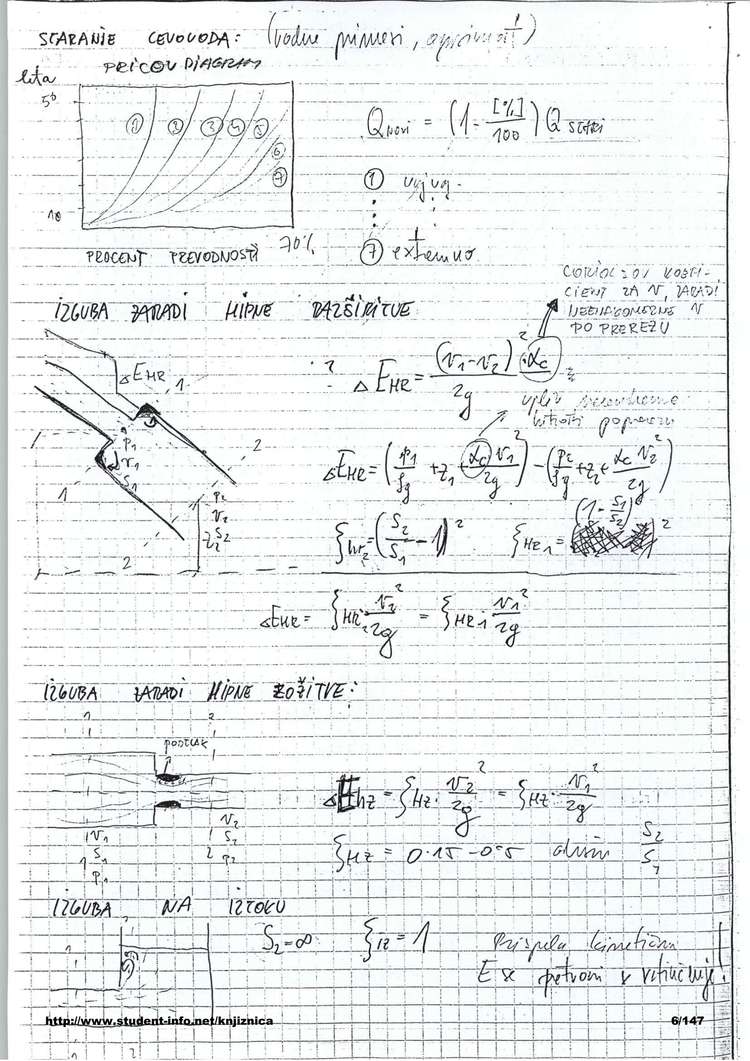 STARANJE CEVOVODA: (vodne primesi, agresivnost)
PRICOV DIAGRAM
leta
50
10
1 2 3 4 5 6 7
PROCENT PREVODNOSTI 70%
Q NOVI = (1 - [%]/100) Q STARI
① ugug.
⑦ extremno
IZGUBA ZARADI HIPNE RAZŠIRITVE
CORIOLISOV KOEFI-
CIENT ZA v, ZARADI
NEENAKOMERNE v
PO PREREZU
ΔE HR
1
p1
v1
S1
2
p2
v2
S2
z2
1
2
? ΔE HR = (v1 - v2)²/2g · αc
vpliv
hitrosti po prerezu
ΔE HR = (p1/ρg + z1 + αc v1²/2g) - (p2/ρg + z2 + αc v2²/2g)
ξ hr2 = (S2/S1 - 1)² ξ HR1 = (1 - S1/S2)²
ΔE HR = ξ HR2 · v2²/2g = ξ HR1 · v1²/2g
IZGUBA ZARADI HIPNE ZOŽITVE:
1 2
podtlak
v1
1 S1
p1
v2
S2
2 p2
ΔE hz = ξ Hz · v2²/2g = ξ Hz · v1²/2g
ξ HZ = 0.15 - 0.5 S2/S1
IZGUBA NA IZTOKU
S2 = ∞ ξ iz = 1
Prispela kinetična
E se pretvori v vrtinčenje!
1
2
http://www.student-info.net/knjiznica
6/147